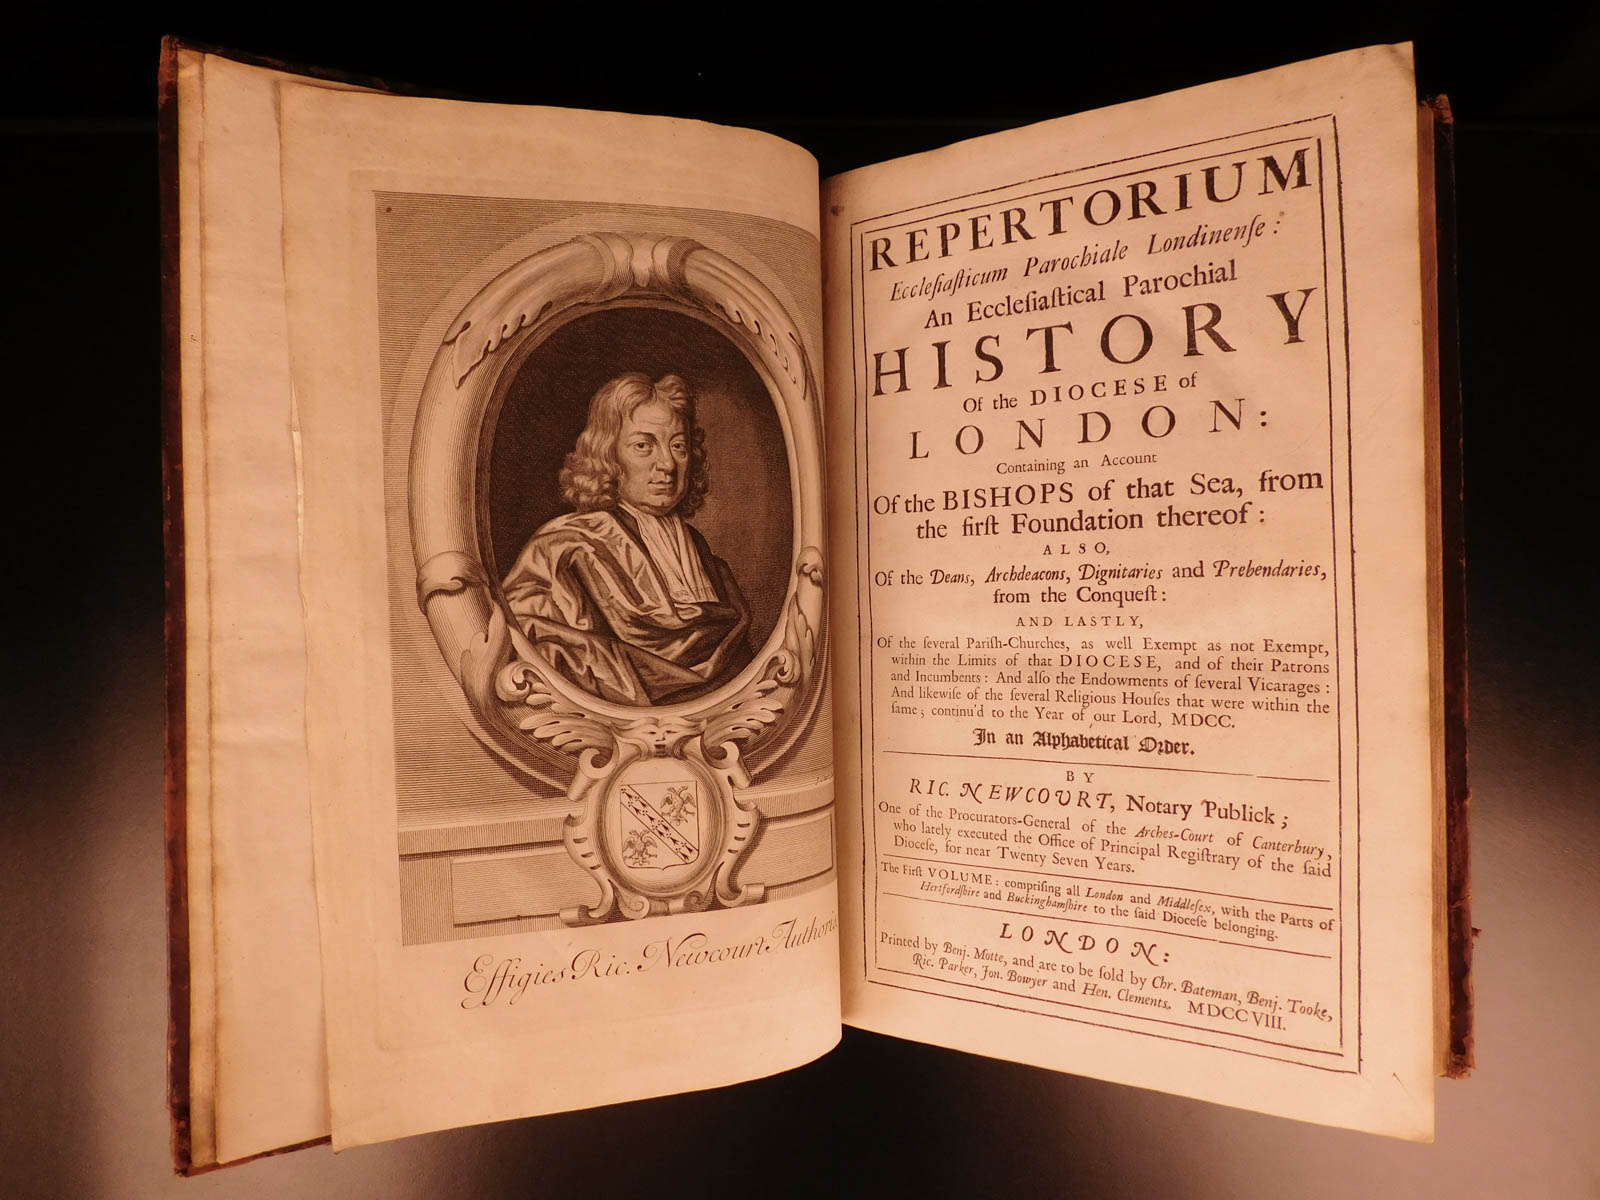 Effigies Ric. Newcourt Authoris.
REPERTORIUM
Eccleſiaſticum Parochiale Londinenſe:
An Eccleſiaſtical Parochial
HISTORY
Of the DIOCESE of
LONDON:
Containing an Account
Of the BISHOPS of that Sea, from
the firſt Foundation thereof:
ALSO,
Of the Deans, Archdeacons, Dignitaries and Prebendaries,
from the Conqueſt:
AND LASTLY,
Of the ſeveral Pariſh-Churches, as well Exempt as not Exempt,
within the Limits of that DIOCESE, and of their Patrons
and Incumbents: And alſo the Endowments of ſeveral Vicarages:
And likewiſe of the ſeveral Religious Houſes that were within the
ſame; continu'd to the Year of our Lord, MDCC.
In an Alphabetical Order.
BY
RIC. NEWCOURT, Notary Publick;
One of the Procurators-General of the Arches-Court of Canterbury,
who lately executed the Office of Principal Regiſtrary of the ſaid
Dioceſe, for near Twenty Seven Years.
The Firſt VOLUME: compriſing all London and Middleſex, with the Parts of
Hertfordſhire and Buckinghamſhire to the ſaid Dioceſe belonging.
LONDON:
Printed by Benj. Motte, and are to be ſold by Chr. Bateman, Benj. Tooke,
Ric. Parker, Jon. Bowyer and Hen. Clements. MDCCVIII.